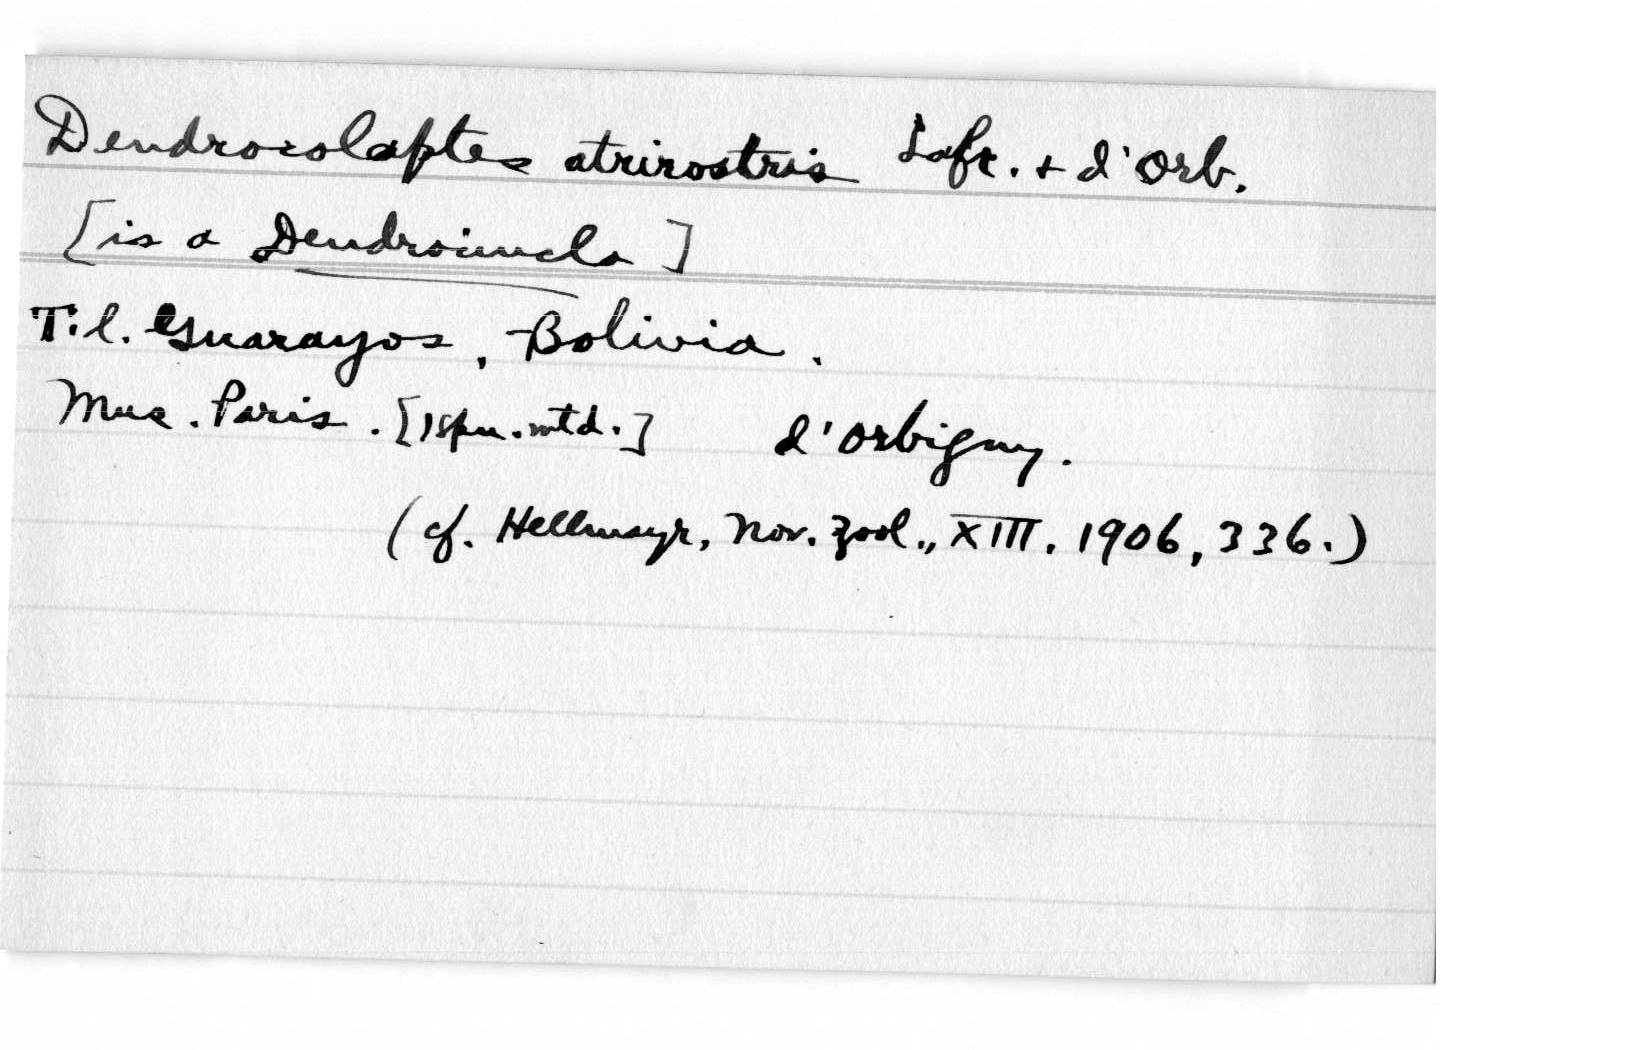 Dendrocolaptes atrirostris Lafr. + d'Orb.
[is a Dendrocincla]
T.l. Guarayos, Bolivia.
Mus. Paris. [1 spn. mtd.] d'Orbigny.
(cf. Hellmayr, Nov. Zool., XIII. 1906, 336.)